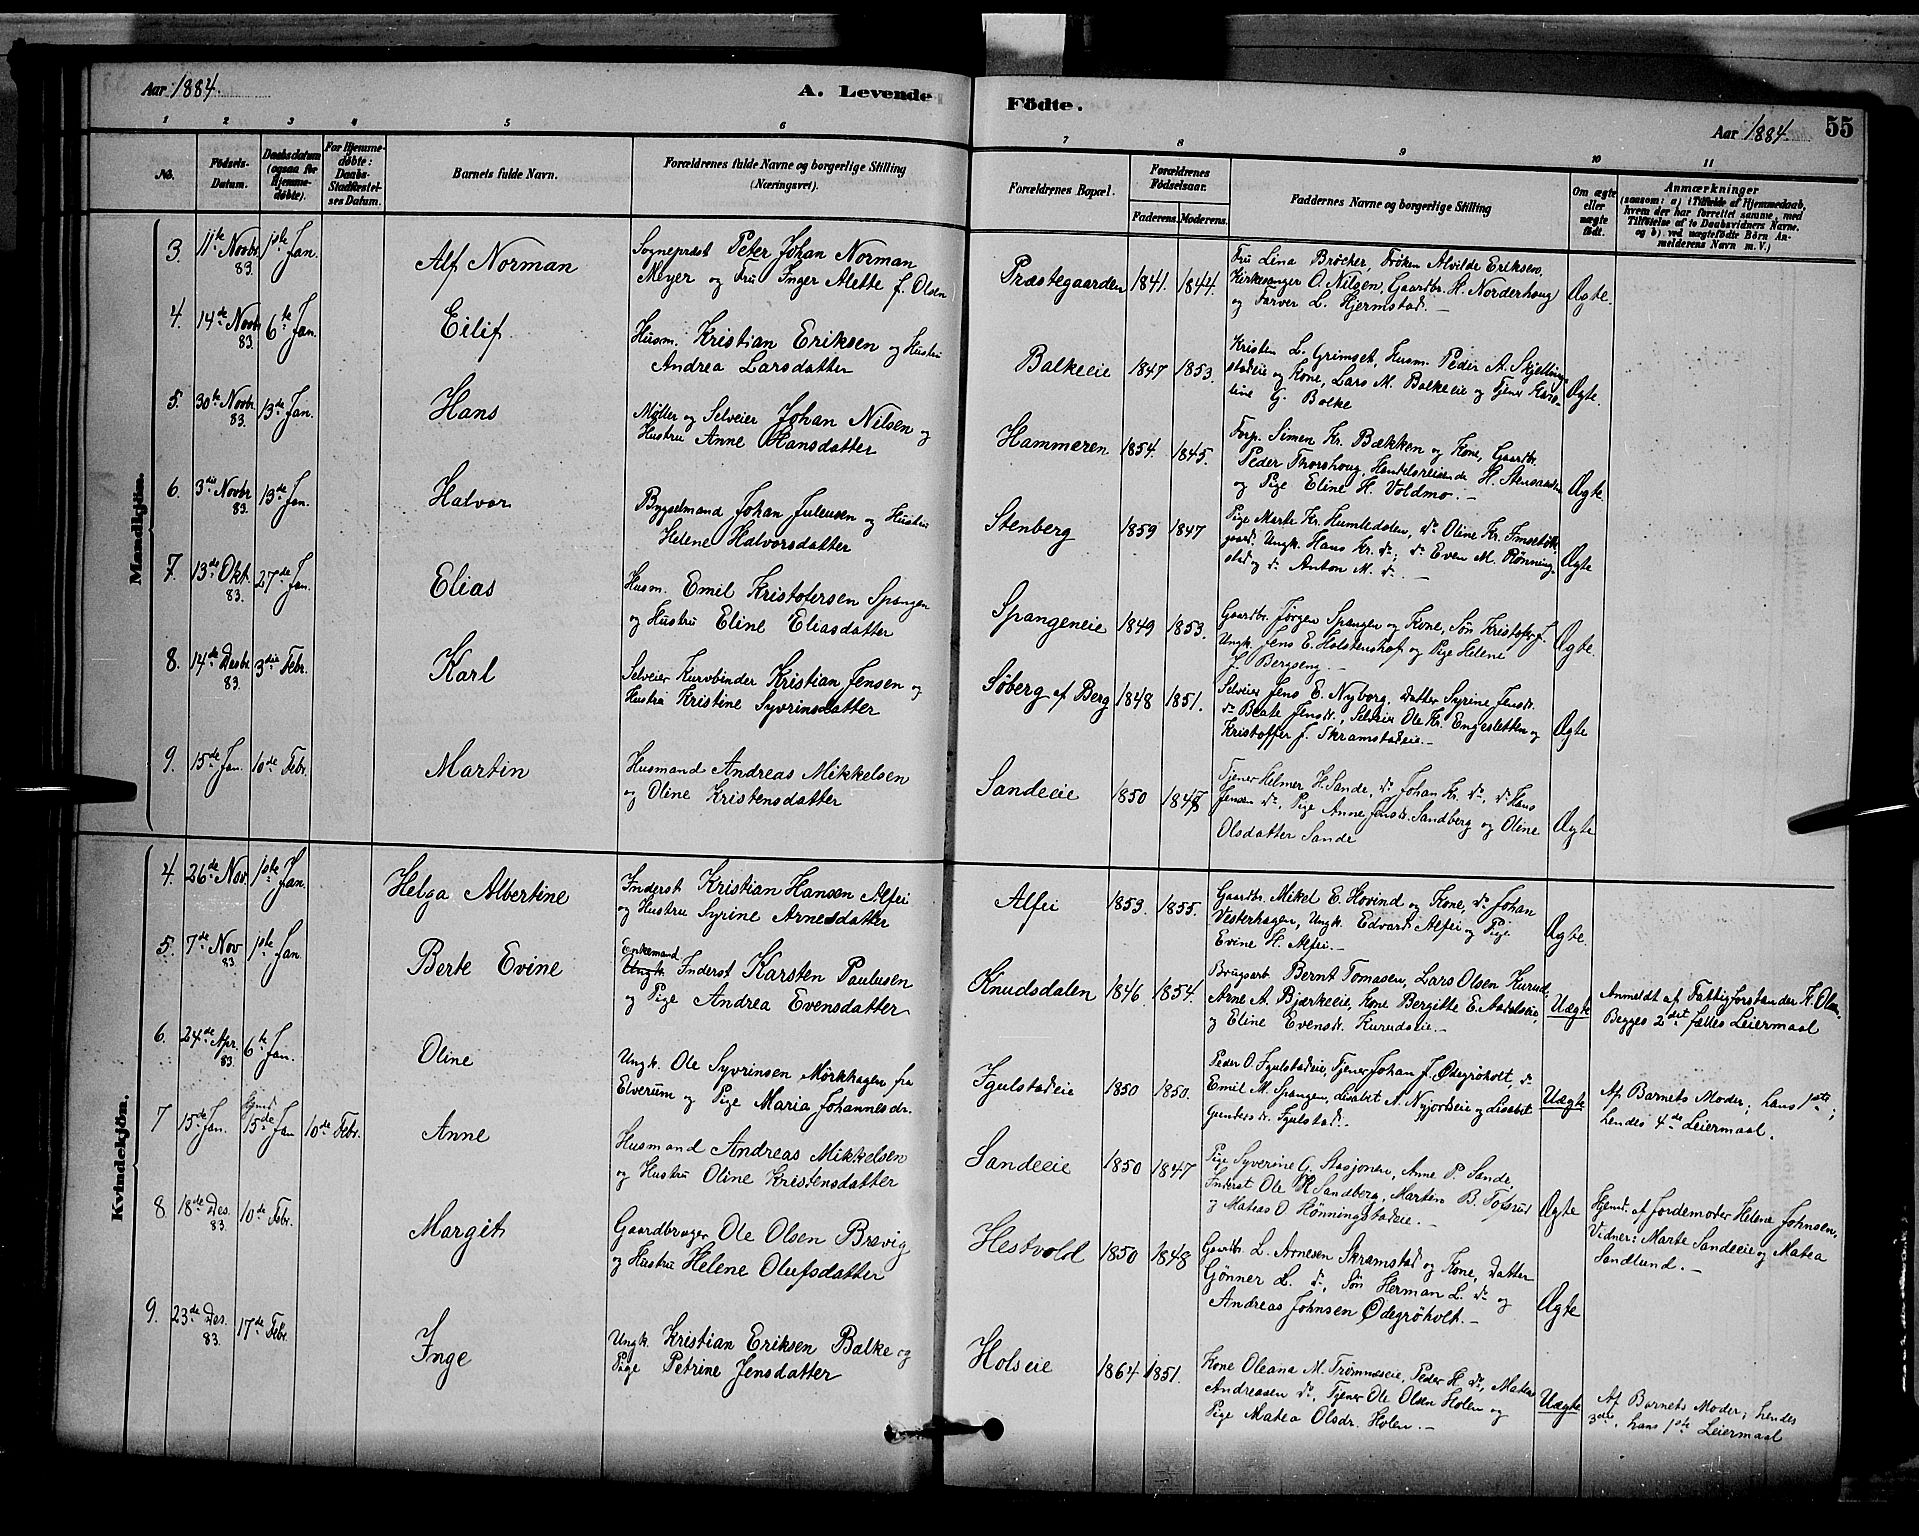 Aar 1884.
A. Levende
Födte.
Aar 1884.
55
1 2 3 4 5 6 7 8 9 10 11
No.
Födsels-
Datum.
Daabsdatum
(ogsaa for
Hjemme-
döbte).
For Hjemme-
döbte:
Daabs-
Stadfæstel-
ses Datum.
Barnets fulde Navn.
Forældrenes fulde Navne og borgerlige Stilling
(Næringsvei).
Forældrenes Bopæl.
Forældrenes
Födselsaar.
Faderens. Moderens.
Faddernes Navne og borgerlige Stilling
Om ægte
eller
uægte
födt.
Anmærkninger
(saasom: a) i Tilfælde af Hjemmedaab,
hvem der har forrettet samme, med
Tilföielse af to Daabsvidners Navne,
og b) ved uægtefödte Börn An-
melderens Navn m. V.)
Mandkjön.
3. 11te Novbr 83. 1ste Jan. Alf Norman
Sogneprest Peter Johan Norman
Meyer og Fru Inger Alette f. Olsen
Præstegaarden 1841. 1844.
Fru Lina Bröcher, Fröken Alvilde Eriksen,
Kirkesanger O. Nilsen, Gaardbr. H. Norderhoug
og Farver L. Hjermstad.—
Ægte.
4. 14de Novbr 83. 6te Jan. Eilif
Husm. Kristian Eriksen og Hustru
Andrea Larsdatter
Balkeeie 1847 1853.
Kristen L. Grimset, Husm. Peder A. Skjelting-
stadeie og Kone, Lars M. Balkeeie og Tjener Karo-
line G. Balke
Ægte.
5. 30te Novbr 83. 13de Jan. Hans
Möller og Selveier Johan Nilsen og
Hustru Anne Hansdatter
Hammeren 1854. 1845.
Forp. Simen Kr. Bækken og Kone, Gaardbr.
Peder Thorshoug, Handelsreisende H. Stensaasen
og Pige Eline H. Voldmo.—
Ægte
6. 3die Novbr 83. 13de Jan. Halvor
Bygselmand Johan Juleusen og Hustru
Helene Halvorsdatter
Stenberg 1859 1847
Pige Marte Kr. Humledalen, do Oline Kr.
gaard. Ungk. Hans Kr. do; do Even M. Rönning-
stad og do Anton M. do.—
Ægte
7. 13de Okt. 83. 27de Jan. Elias
Husm. Emil Kristofersen Spangen
og Hustru Eline Eliasdatter
Spangeneie 1849 1853.
Gaardbr. Jörgen Spangen og Kone, Sön Kristofer J.
Ungk. Jens E. Holstenshof og Pige Helene
J. Bergseng.—
Ægte.
8. 14de Desbr 83. 3die Febr. Karl
Selveier Kurvbinder Kristian Jensen og
Hustru Kristine Syvrinsdatter
Söberg af Berg 1848 1851.
Selveier Jens E. Nyborg, Datter Syrine Jensdr.
do Beate Jensdr., Selveier Ole Kr. Engesletten og
Kristoffer J. Skramstadeie.—
Ægte
9. 15de Jan. 10de Febr. Martin
Husmand Andreas Mikkelsen
og Oline Kristensdatter
Sandeeie 1850 1847
Tjener Helmer H. Sande, do Johan Kr. do, do Hans
Jensen do, Pige Anne Jensdr. Sandberg og Oline
Olsdatter Sande
Ægte
Kvindekjön.
4. 26de Nov. 1ste Jan. Helga Albertine
Inderst Kristian Hansen Alfei
og Hustru Syrine Arnesdatter
Alfei 1853. 1855.
Gaardbr. Mikel E. Hovind og Kone, do Johan
Vesterhagen, Ungk. Edvard Alfei og Pige
Evine H. Alfei.—
Ægte.
5. 7de Nov 83. 1ste Jan. Berte Evine
Enkemand
Ungk. Inderst Karsten Paulusen
og Pige Andrea Evensdatter
Knudsdalen 1846. 1854.
Brugsarb. Bernt Tomasen, Lars Olsen Kurud,
Arne A. Bjærkeeie, Kone Bergitte E. Aadalseie,
og Eline Evensdr. Kurudseie.—
Uægte
Anmeldt af Fattigforstander K. Olsen.
Begges 2det fælles Leiermaal
6. 24de Apr. 83. 6te Jan. Oline
Ungk. Ole Syvrinsen Mörkhagen fra
Elverum og Pige Maria Johannesdr.
Igulstadeie 1850 1850.
Peder O. Igulstadeie, Tjener Johan J. Ödegröholt, do
Emil M. Spangen, Lisabet A. Nyjordseie og Lisabet
Gundersdr. Igulstad.—
Uægte
Af Barnets Moder; hans 1ste;
hendes 4de Leiermaal.
7 15de Jan. Hjmd. 15de Jan 10de Febr. Anne
Husmand Andreas Mikkelsen
og Hustru Oline Kristensdatter
Sandeeie 1850 1847
Pige Syverine G. Stasjonen, Anne P. Sande,
Inderst Ole H. Sandberg, Marten B. Tofsrud
og Mateas O. Hönningstadeie.—
Ægte
Hjemd. af Jordemoder Helene Johnsen,
Vidner: Marte Sandeeie og Matea
Sandlund.—
8. 18de Des. 83. 10de Febr. Margit
Gaardbruger Ole Olsen Brevig
og Hustru Helene Olufsdatter
Hestvold 1850 1848
Gaardbr. L. Arnesen Skramstad og Kone, Datter
Gönner L. do, Sön Herman L. do og
Andreas Johnsen Ödegröholt.—
Ægte
9. 23de Des. 83. 17de Febr. Inge
Ungk. Kristian Eriksen Balke og
Pige Petrine Jensdatter
Holseie 1864 1851.
Kone Oleana M. Trömnæseie, Peder H. do, Matea
Andreasen do, Tjener Ole Olsen Holen og
Pige Matea Olsdr. Holen.—
Uægte
Af Barnets Moder; hendes
3die, hans 1ste Leiermaal